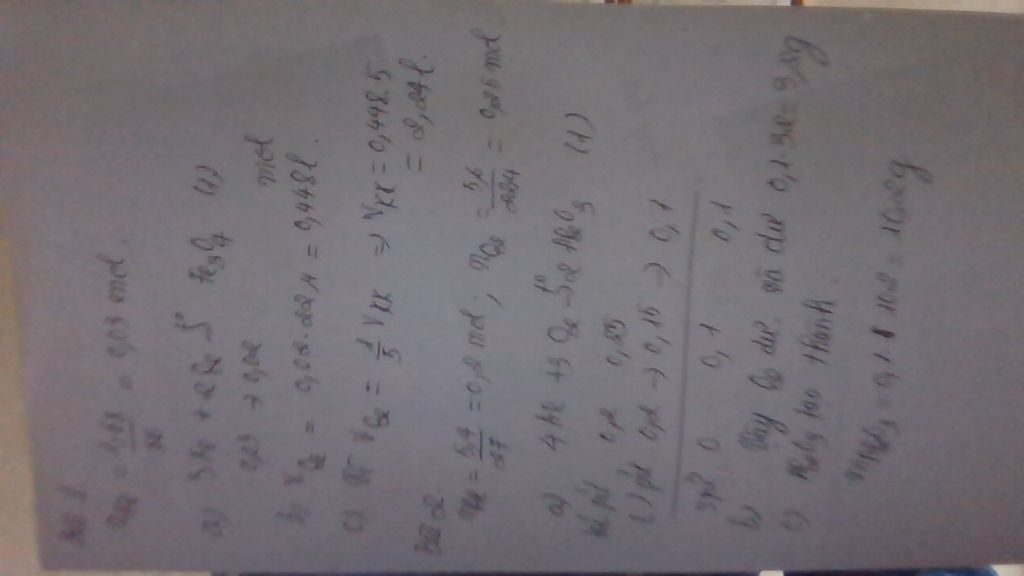 Bài 1
nFe = 1,68/56 = 0,03 mol.
a) 3Fe + 2O2 t° Fe3O4 (1)
0,03 → 0,02 mol
b) VO2 = 0,02.22,4 = 0,448 l.
c) VO2 = 1/5 VKK => VKK = 0,448.5
= 2,24 l.
Bài 2
nAl = 5,4/27 = 0,2 mol; nO2 = 5,6/22,4 = 0,25 mol
a) 4Al + 3O2 t° 2Al2O3 (1)
0,2 0,25
(1) pứ 0,2 → 0,15 → 0,1
spứ 0 0,1 0,1
b) Vậy O2 dư. và dư 0,1.32 = 3,2g
c) Al2O3 tạo thành.
mAl2O3 = 0,1.102 = 10,2g